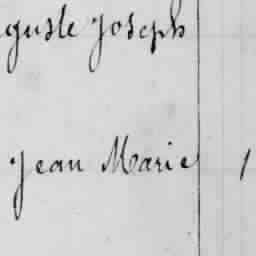 guste Joseph
Jean Marie 1